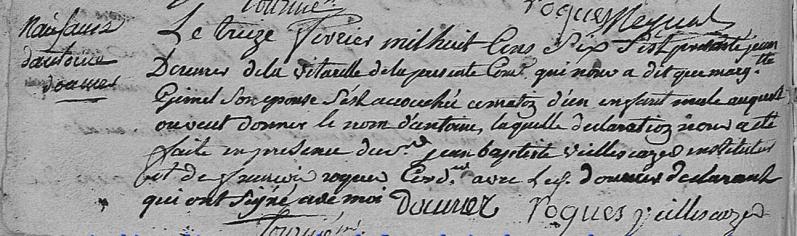 Naissance
d'antoine
doumer
Le treize fevrier mil huit Cens Six S'est presenté jean
Doumer de la vitarelle de la presente Com.ᵉ qui nous a dit que marg.ᵗᵗᵉ
Gimel Son epouse S'est accouchée ce matin d'un enfant male auquel
ou veut donner le nom d'antoine, laquelle declaration nous a eté
faite en presence du s.ʳ jean baptiste vieillescazes instituteur
et de francois roques Cord.ⁿⁱᵉʳ avec led. doumer declarant
qui ont Signé avec moi doumer roques vieillescazes